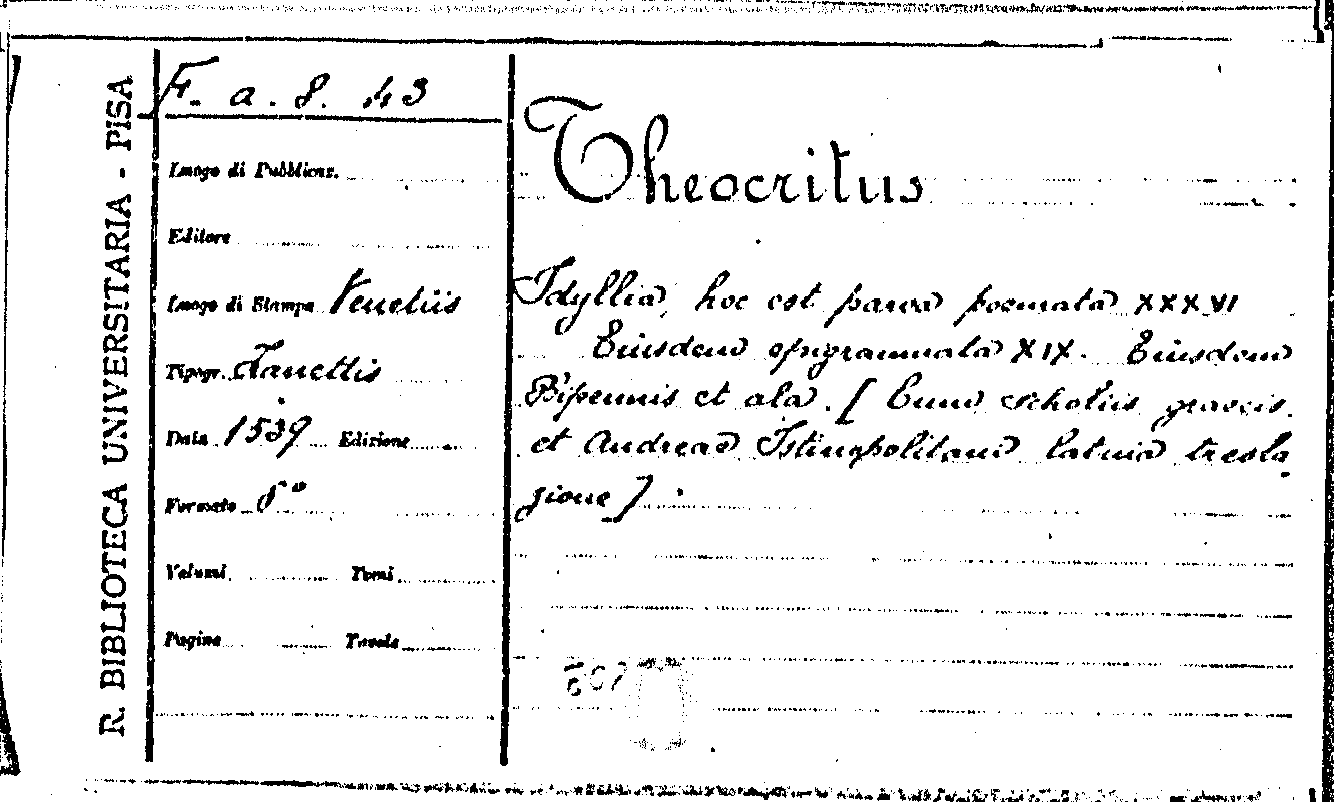 R. BIBLIOTECA UNIVERSITARIA - PISA
F. a. 8. 43
Luogo di Pubblicaz.
Editore
Luogo di Stampa Venetiis
Tipogr. Zanettis
Data 1539 Edizione
Formato 8°
Volumi Tomi
Pagine Tavole
Theocritus
Idyllia, hoc est parva poemata XXXVI
Eiusdem epigrammata XIX. Eiusdem
Bipennis et ala. [Cum scholiis graecis
et Andreae Istinopolitani latina tresla
zione]